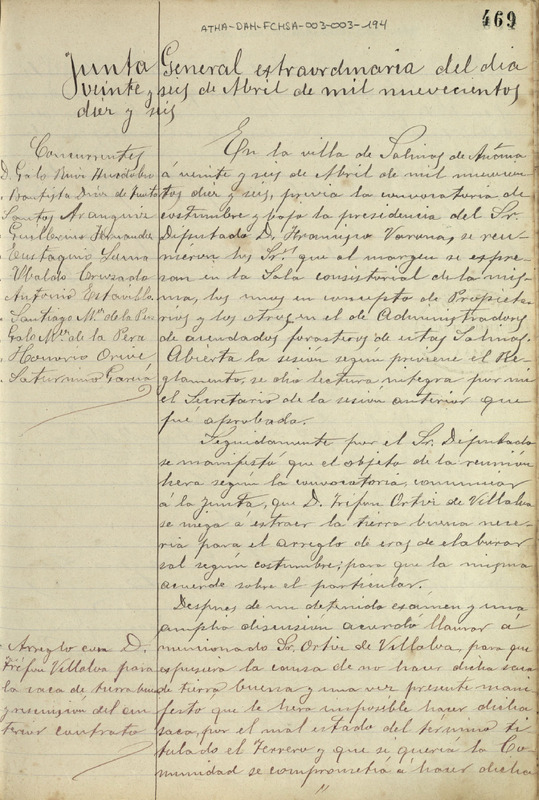 469
ATHA-DAH-FCHSA-003-003-194
Junta General extraordinaria del dia
veinte y seis de Abril de mil nuevecientos
diez y seis
Concurrentes
D. Galo Ruiz Husodobro
" Bautista Diaz de Junto
" Santos Aranguiz
" Guillermo Fernandez
" Eustaquio Sauna
" Ubaldo Cruzado
" Antonio Estavillo
" Santiago Mz. de la Pera
" Galo Mz. de la Pera
" Honorio Orive
" Saturnino Garcia
En la villa de Salinas de Añana
á veinte y seis de Abril de mil nuevecien
tos diez y seis, previa la convocatoria de
costumbre y bajo la presidencia del Sr.
Diputado D. Francisco Varona, se reu-
nieron los Srs. que al margen se expre-
san en la Sala consistorial de la mis-
ma, los unos en concepto de Propieta-
rios y los otros en el de Administradores
de acendados forasteros de estas Salinas.
Abierta la sesión segun previene el Re-
glamento, se dio lectura integra por mi
el Secretario de la sesion anterior que
fué aprobada.
Seguidamente por el Sr. Diputado
se manifestó que el objeto de la reunión
hera segun la convocatoria, comunicar
á la Junta, que D. Trifon Ortiz de Villalva
se niega a estraer la tierra buena nece-
ria para el arreglo de eras de elaborar
sal según costumbre; para que la misma
acuerde sobre el particular.
Despues de un detenido examen y una
amplia discusión acordó llamar á
mencionado Sr. Ortiz de Villalva, para que
espusiera la causa de no hacer dicha saca
de tierra buena y una vez presente mani
festo que le hera imposible hacer dicha
saca, por el mal estado del término ti
tulado el Ferrero y que si queria la Co-
munidad se comprometia á hacer dicha
Arreglo con D.
Trifon Villalva para
la saca de tierra buena
y rescision del an
terior contrato